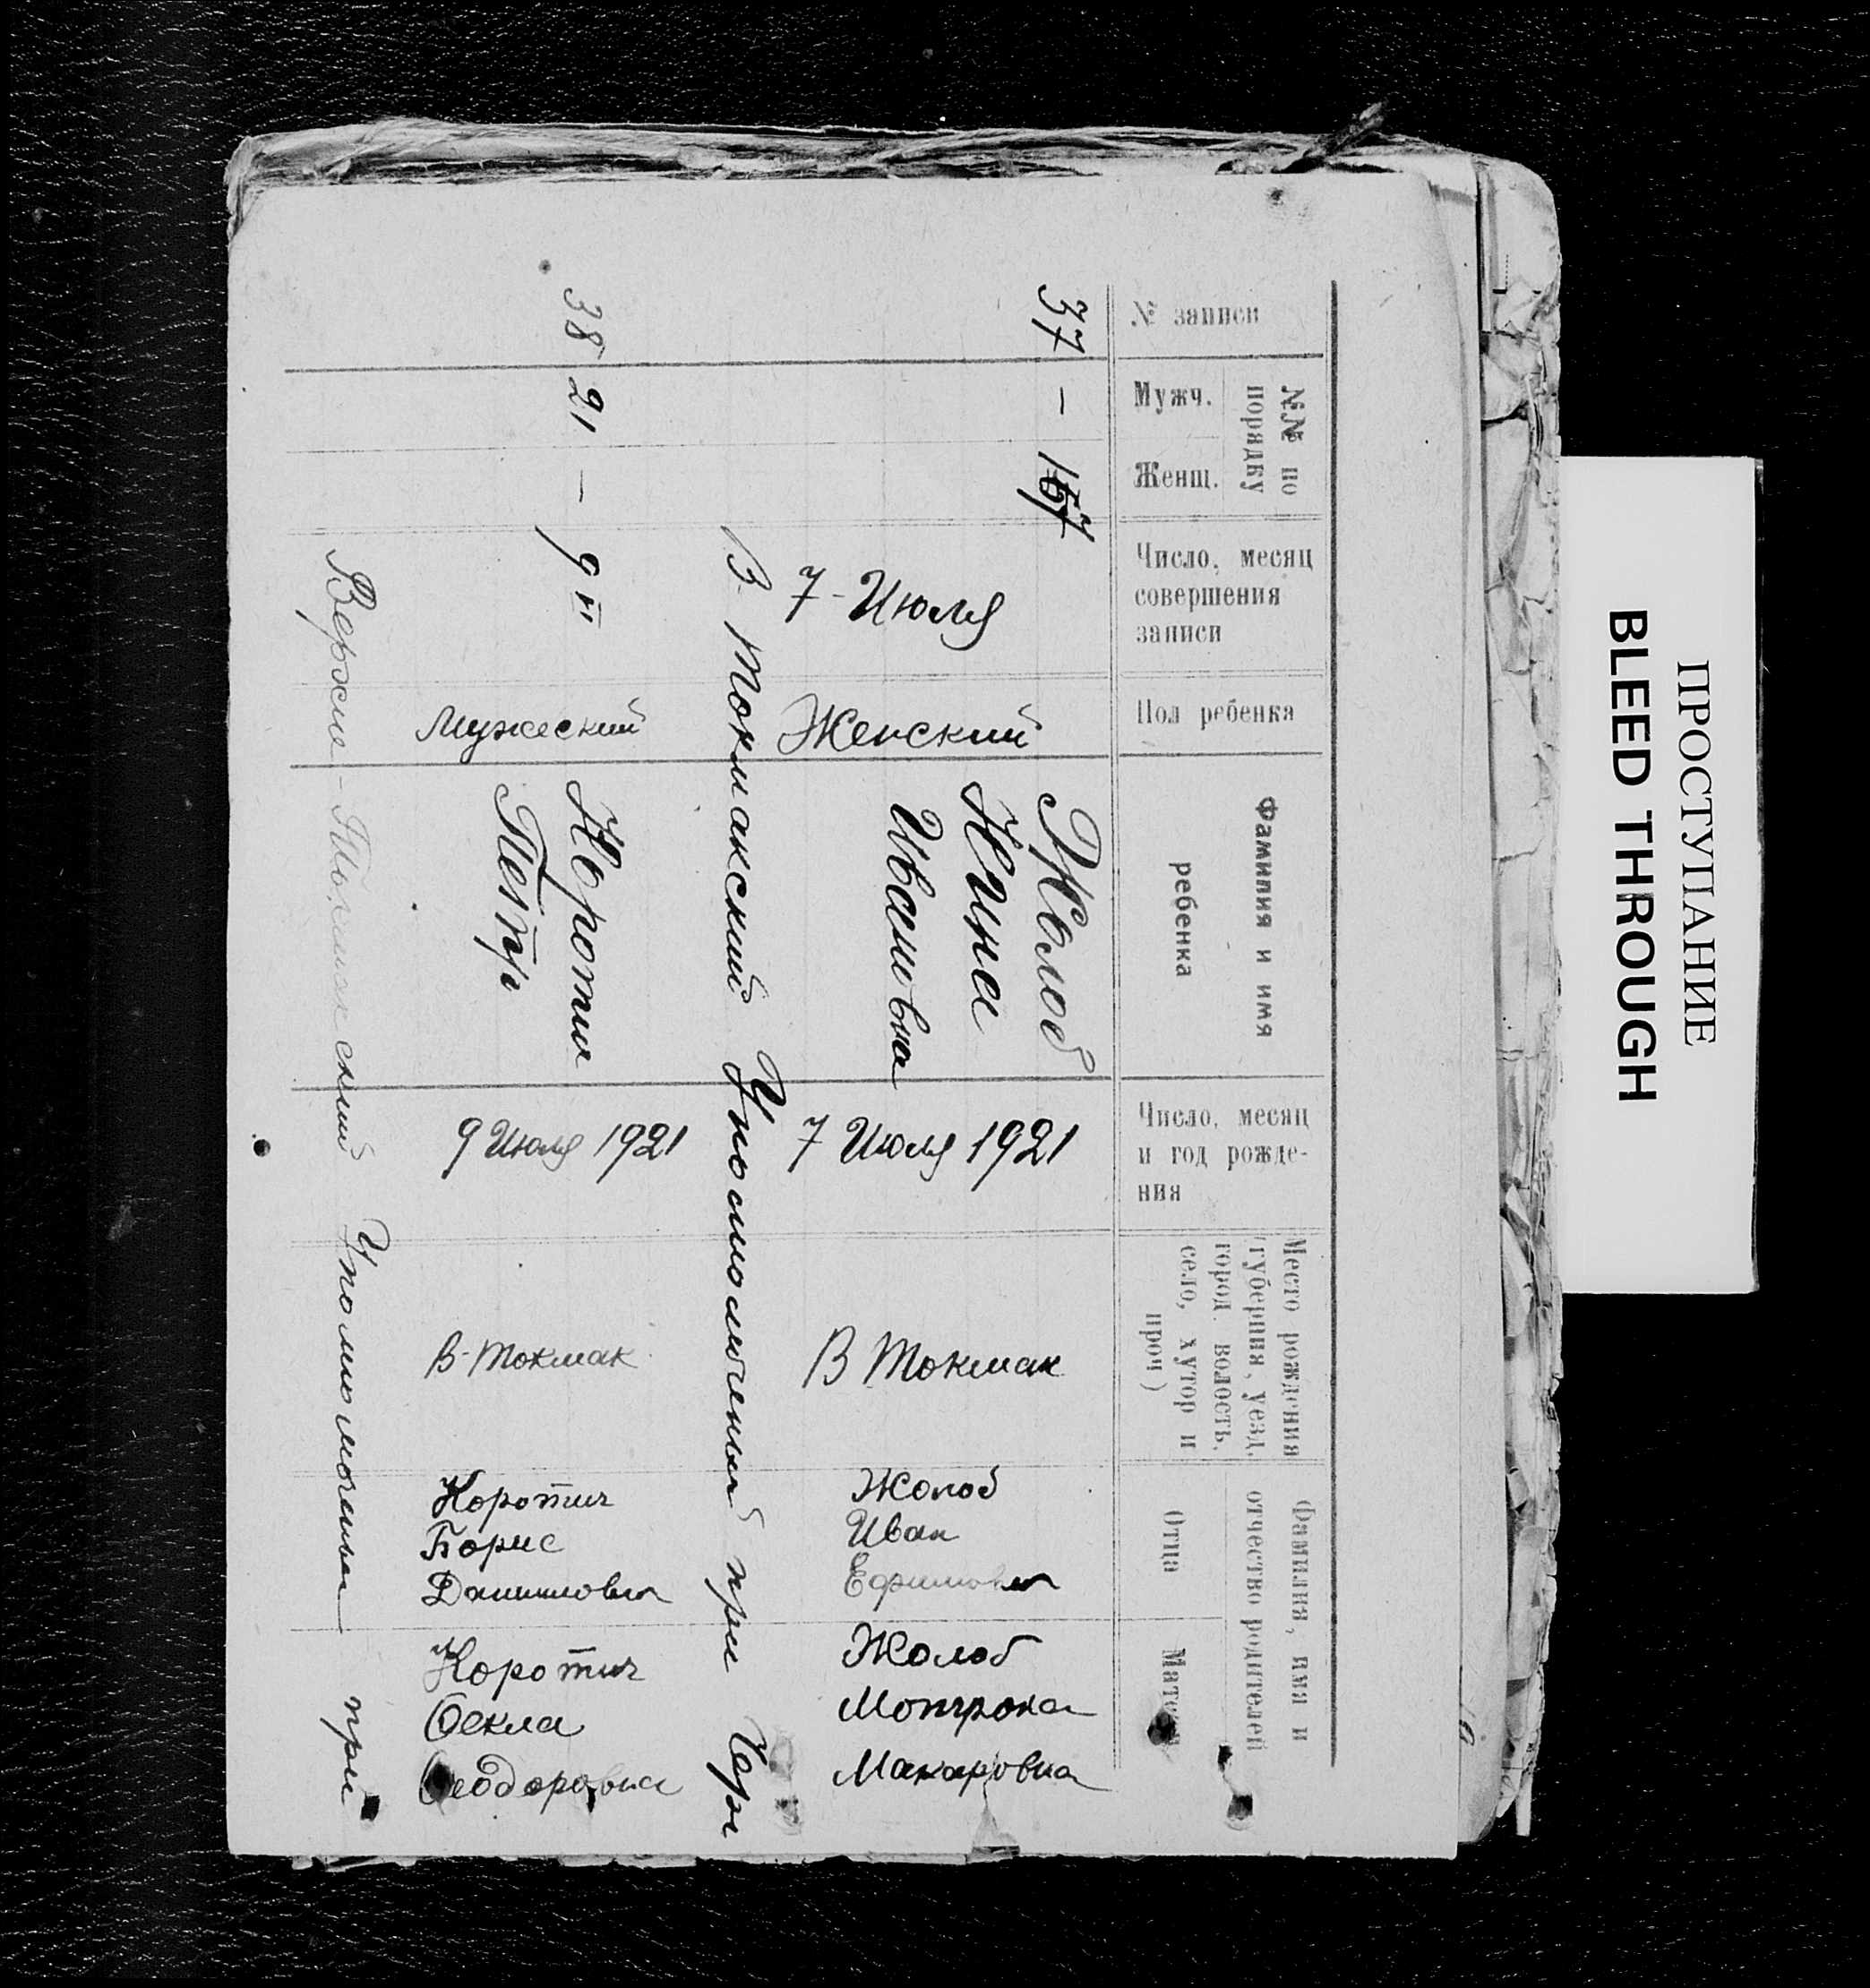 № записи
№№ по
порядку
Мужч.
Женщ.
Число, месяц
совершения
записи
Пол ребенка
Фамилия и имя
ребенка
Число, месяц
и год рожде-
ния
Место рождения
(губерния, уезд,
город, волость,
село, хутор и
проч)
Фамилия, имя и
отчество родителей
Отца
Матери
37
—
7 - Июля
Женский
Жолоб
Нина
Ивановна
7 Июля 1921
В Токмак
Жолоб
Иван
Ефимович
Жолоб
Мотрона
Макаровна
В. Токмакский Уполномоченый при
38
21
—
9
Мужеский
Коротич
Петр
9 Июля 1921
В-Токмак
Коротич
Борис
Даниилович
Коротич
Фекла
Феодоровна
Верхне-Токмакский Уполномоченый при
ПРОСТУПАНИЕ
BLEED THROUGH